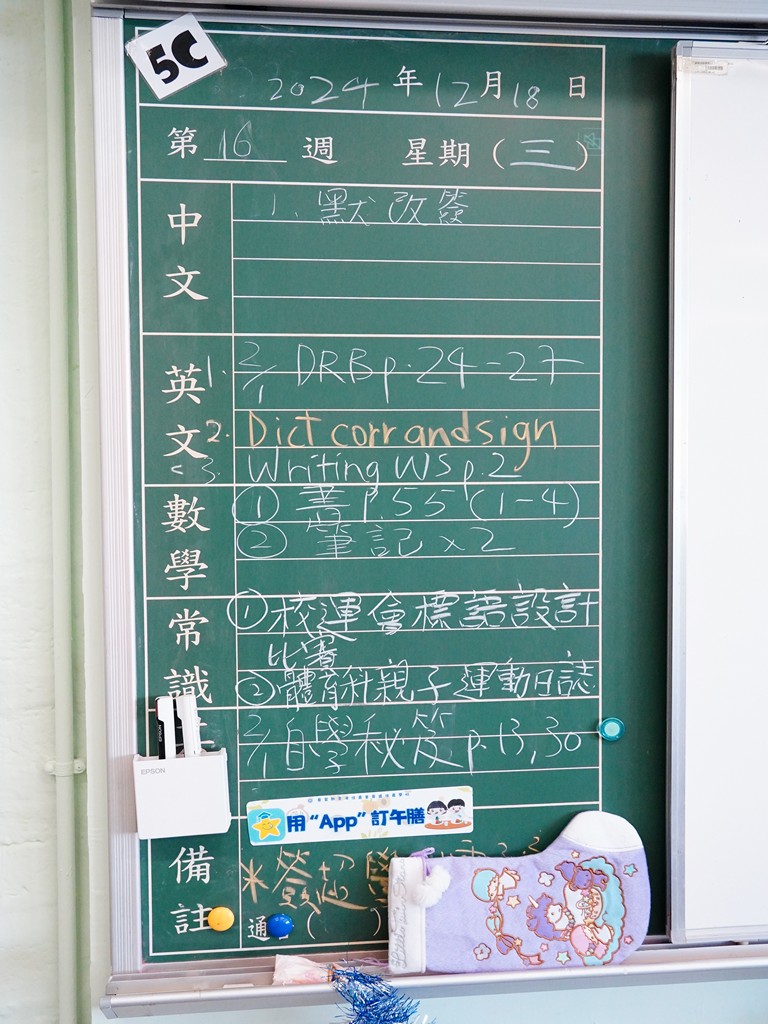 5C
2024 年 12 月 18 日
第 16 週 星期 (三)
中文
1. 默改簽
英文
1. 2/1 DRB p.24-27
2. Dict corr and sign
< 3. Writing WS p.2
數學
① 書 P.55 (1-4)
② 筆記 x2
常識
① 校運會標語設計
比賽
② 體育科親子運動日誌
2/1 自學秘笈 p.13,30
EPSON
用 “App” 訂午膳
備註
*簽
通 ( )